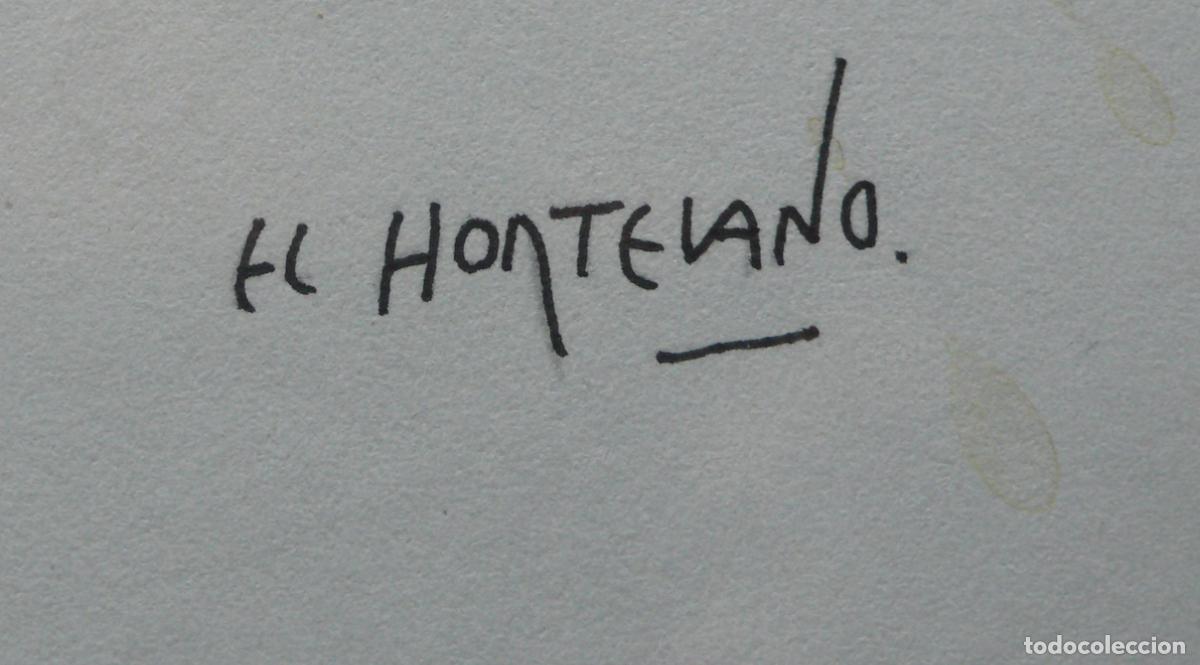 EL HORTELANO.
todocoleccion